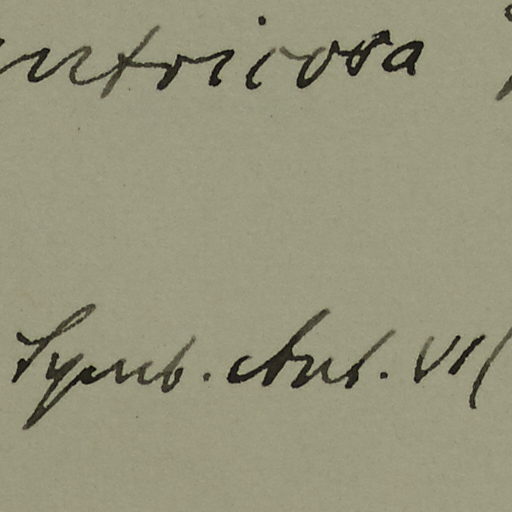 ntricosa
Symb. Ant. VI(